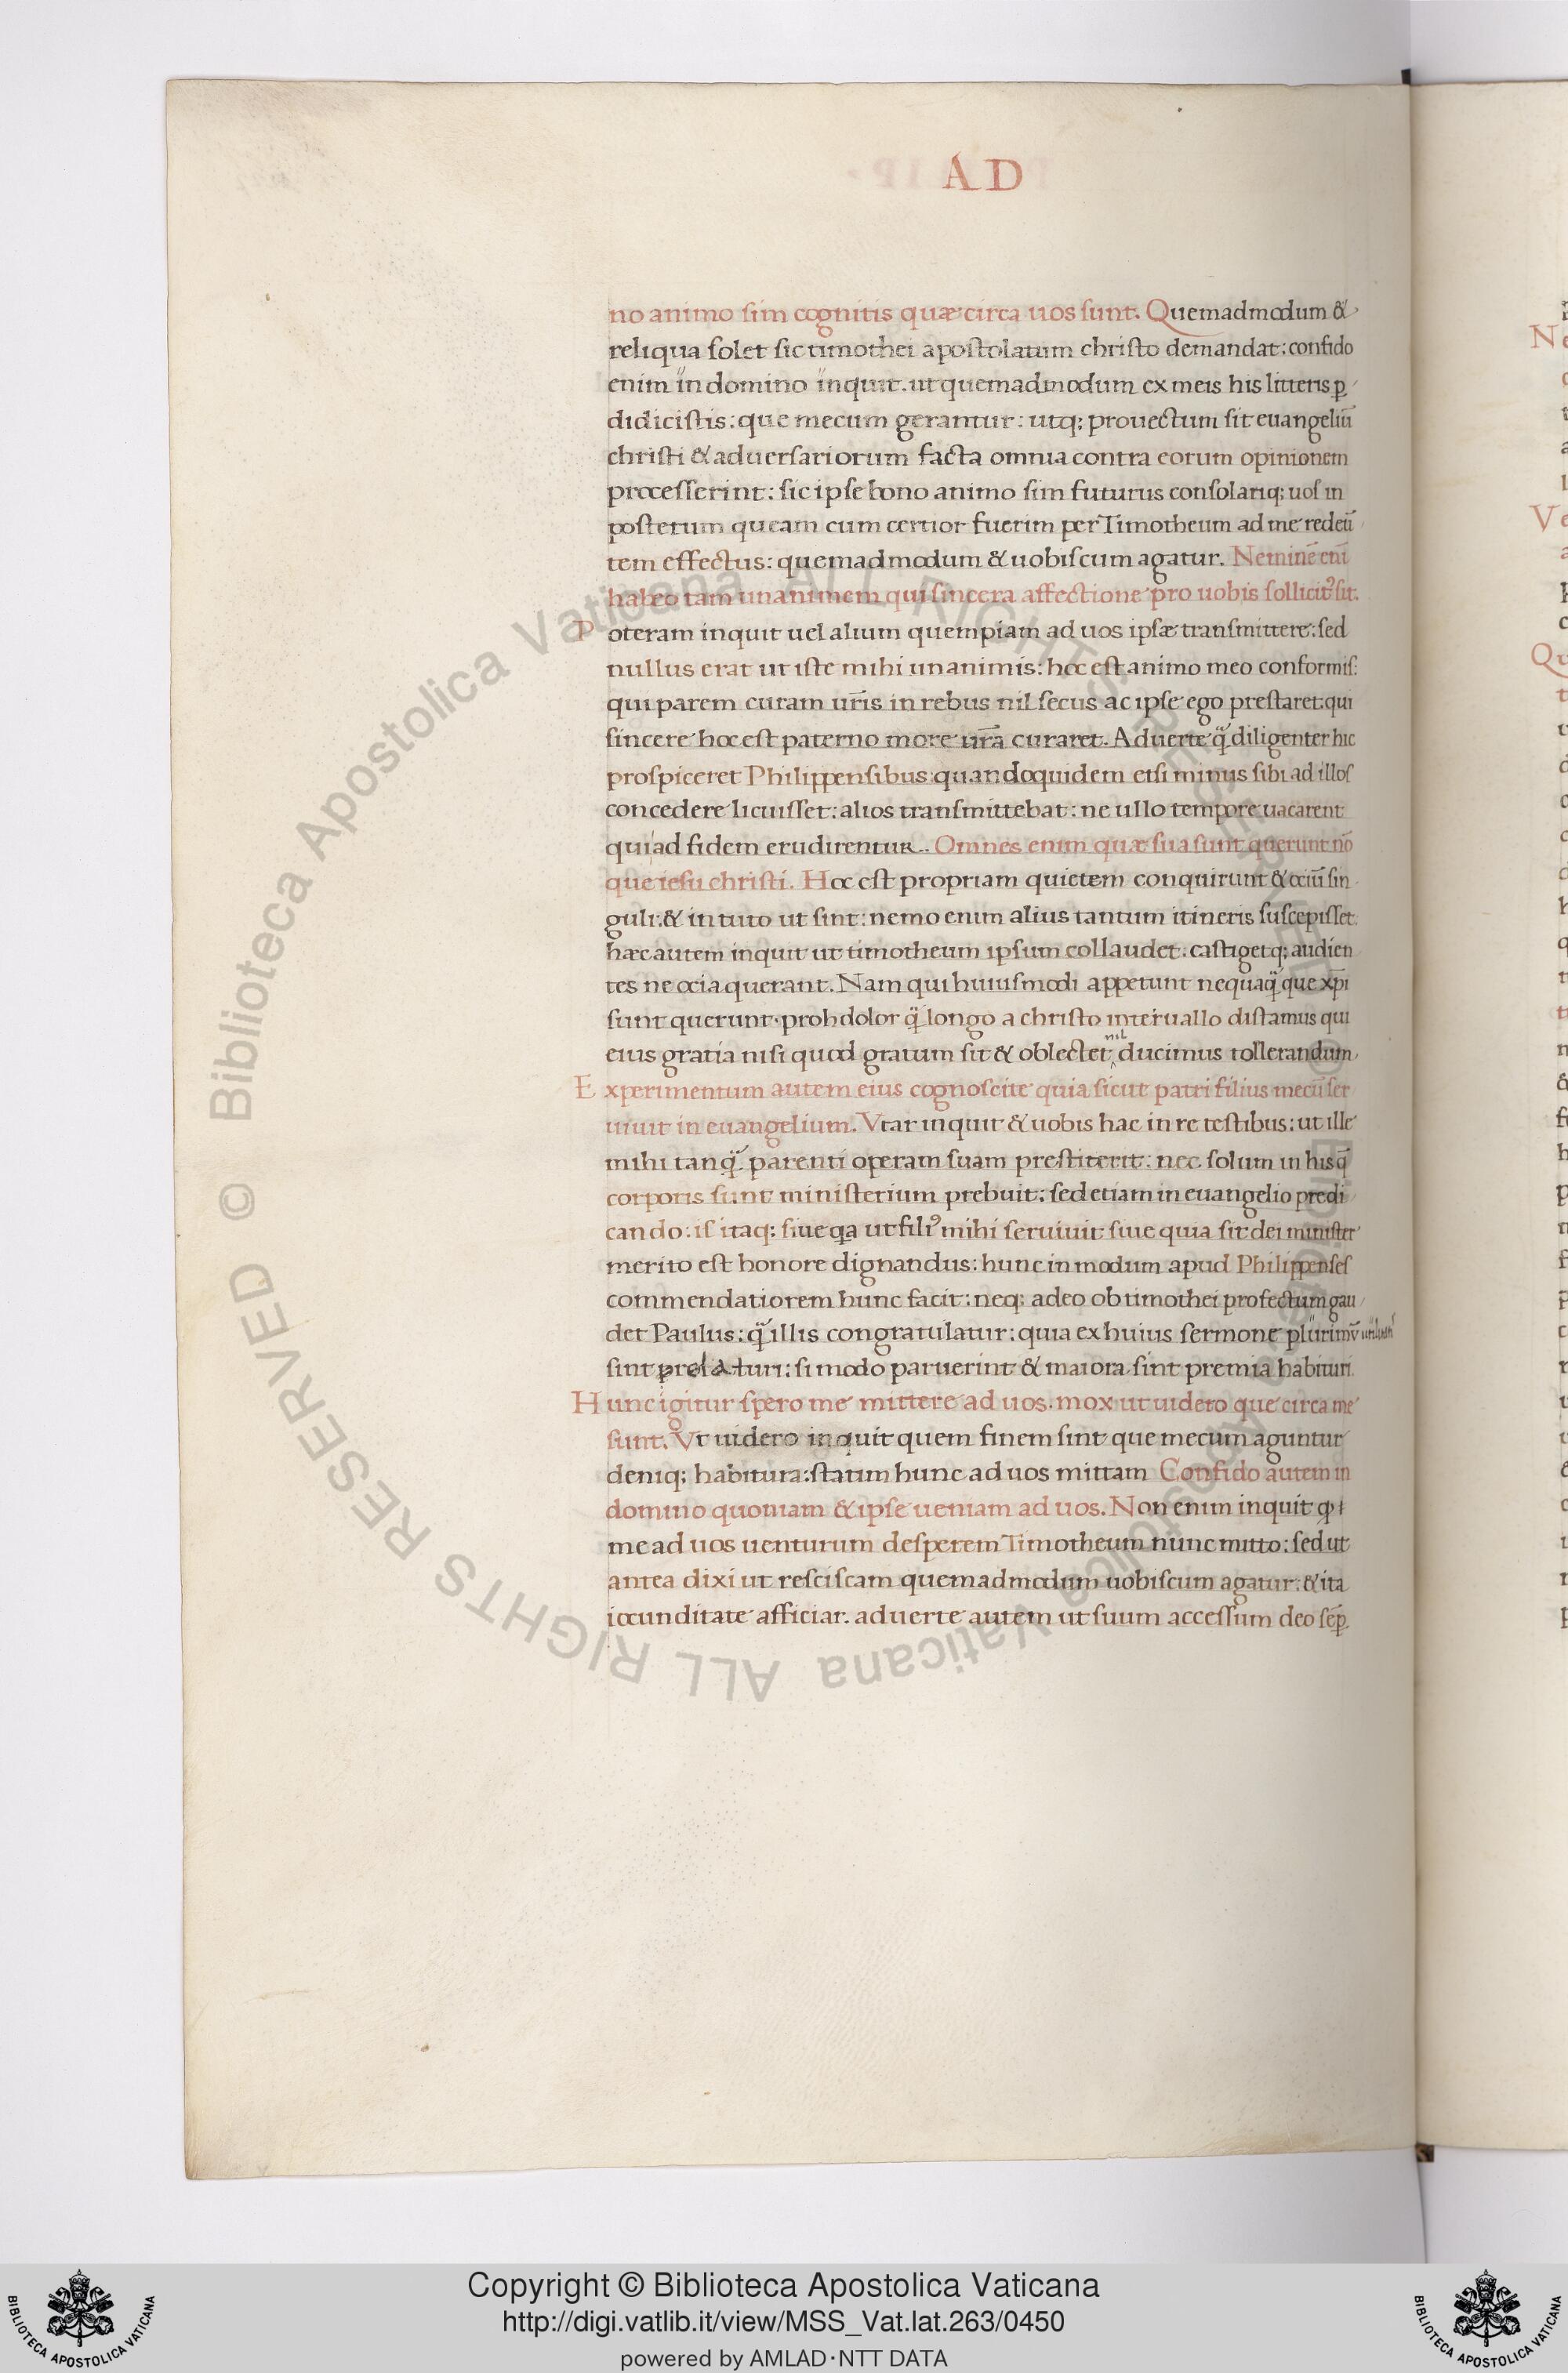 AD
no animo sim cognitis quæ circa uos sunt. Quemadmodum &
reliqua solet sic timothei apostolatum christo demandat: confido
enim in domino inquit. ut quemadmodum ex meis his litteris p̲
didicistis: que mecum gerantur: utq; prouectum sit euangeliū
christi & aduersariorum facta omnia contra eorum opinionem
processerint: sic ipse bono animo sim futurus consolariq; uos in
posterum queam cum certior fuerim per Timotheum ad me redeū
tem effectus: quemadmodum & uobiscum agatur. Neminē enī
habeo tam unanimem qui sincera affectione pro uobis sollicit⁹ sit.
Poteram inquit uel alium quempiam ad uos ipsæ transmittere: sed
nullus erat ut iste mihi unanimis: hoc est animo meo conformis:
qui parem curam ur̄is in rebus nil secus ac ipse ego prestaret: qui
sincere hoc est paterno more ur̄a curaret. Aduerte q̃ diligenter hic
prospiceret Philippensibus: quandoquidem etsi minus sibi ad illos
concedere licuisset: alios transmittebat: ne ullo tempore uacarent
qui ad fidem erudirentur. Omnes enim quæ sua sunt querunt nō
que iesu christi. Hoc est propriam quietem conquirunt & ociū sin
guli: & in tuto ut sint: nemo enim alius tantum itineris suscepisset.
hæc autem inquit ut timotheum ipsum collaudet. castigetq; audien
tes ne ocia querant. Nam qui huiusmodi appetunt nequaq̃ que xp̄i
sunt querunt. proh dolor q̃ longo a christo interuallo distamus qui
eius gratia nisi quod gratum sit & oblectet nil ducimus tollerandum
Experimentum autem eius cognoscite quia sicut patri filius mecū ser
uiuit in euangelium. Vtar inquit & uobis hac in re testibus: ut ille
mihi tanq̃ parenti operam suam prestiterit: nec solum in his q̄
corporis sunt ministerium prebuit: sed etiam in euangelio predi
cando: is itaq; siue qa ut fili⁹ mihi seruiuit siue quia sit dei minister
merito est honore dignandus: hunc in modum apud Philippenses
commendatiorem hunc facit: neq; adeo ob timothei profectum gau
det Paulus: q̃ illis congratulatur: quia ex huius sermone plurimū
sint prelaturi: si modo paruerint & maiora sint premia habituri.
Hunc igitur spero me mittere ad uos. mox ut uidero que circa me
sunt. Vt uidero inquit quem finem sint que mecum aguntur
deniq; habitura: statim hunc ad uos mittam Confido autem in
domino quoniam & ipse ueniam ad uos. Non enim inquit
me ad uos uenturum desperem Timotheum nunc mitto: sed ut
antea dixi ut resciscam quemadmodum uobiscum agatur: & ita
iocunditate afficiar. aduerte autem ut suum accessum deo sēp̲
© Biblioteca Apostolica Vaticana ALL RIGHTS RESERVED © Biblioteca Apostolica Vaticana ALL RIGHTS RESERVED
Copyright © Biblioteca Apostolica Vaticana
http://digi.vatlib.it/view/MSS_Vat.lat.263/0450
powered by AMLAD·NTT DATA
BIBLIOTECA APOSTOLICA VATICANA
BIBLIOTECA APOSTOLICA VATICANA